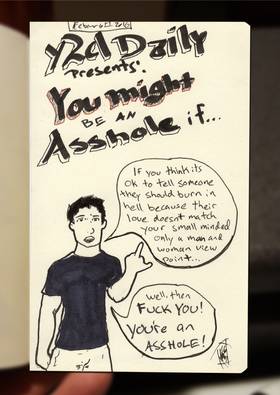 Y2d Daily
Presents:
You might
BE AN
Asshole if...
If you think its
OK to tell someone
they should burn in
hell because their
love doesn't match
your small minded
only a man and
woman view
point...
Well, then
FUCK YOU!
You're an
ASSHOLE!